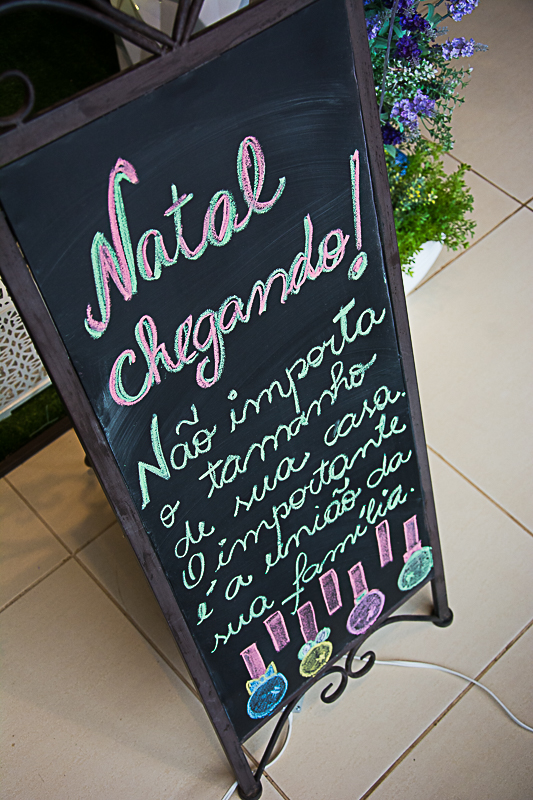 Natal
chegando!
Não importa
o tamanho
de sua casa.
O importante
é a união da
sua família.